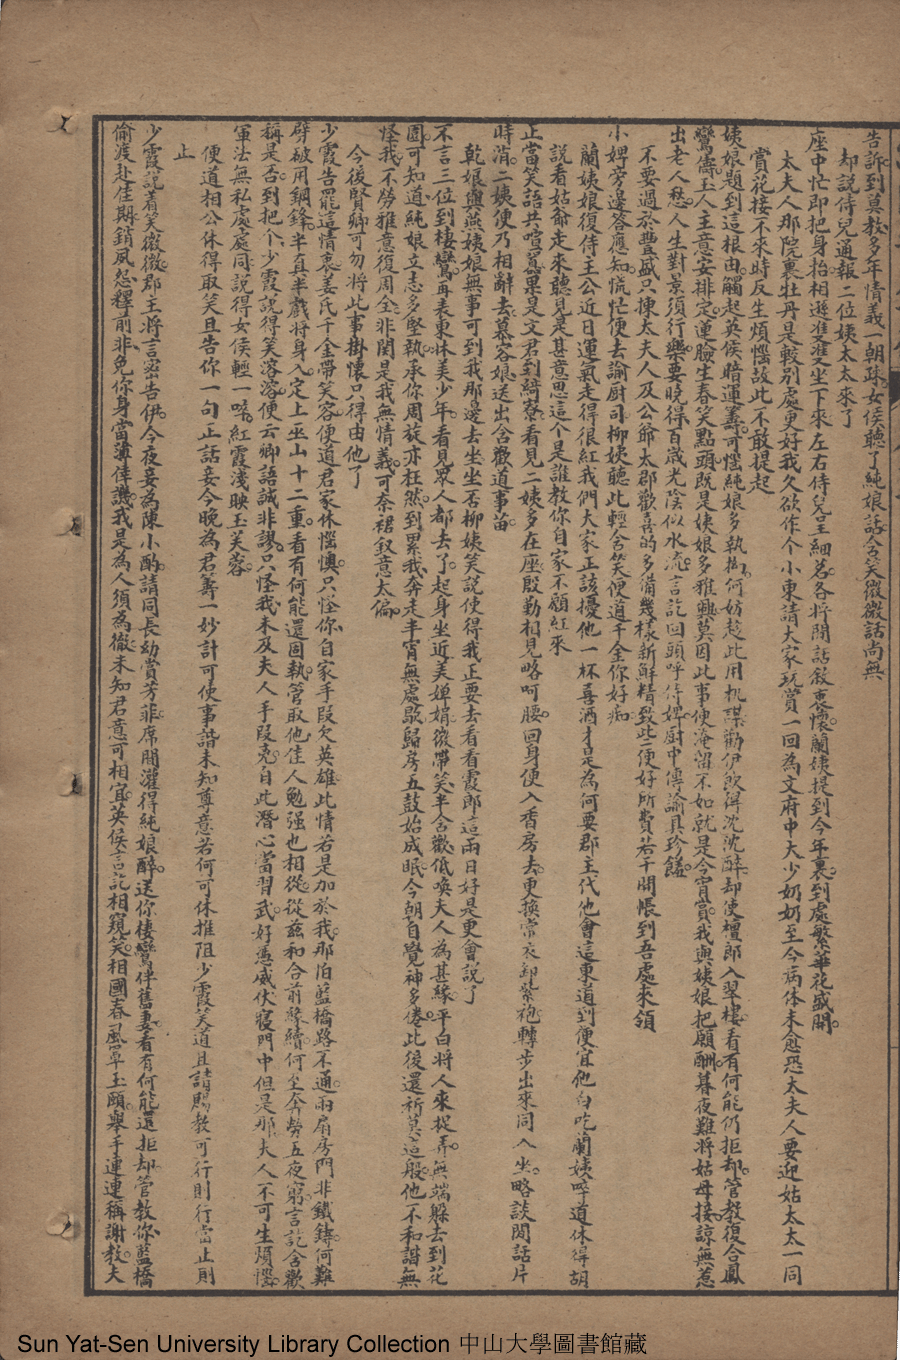 告訴到莫教多年情義一朝疎女侯聽了純娘話含笑微微話尚無
却説侍兒通報二位姨太太來了
座中忙即把身抬相遜雙雙坐下來左右侍兒呈細茗各將閒話敘衷懷蘭姨提到今年裏到處繁華花盛開
太夫人那院裏牡丹是較別處更好我久欲作个小東請大家玩賞一回為文府中大少奶奶至今病体未愈恐太夫人要迎姑太太一同
賞花接不來時反生煩惱故此不敢提起
姨娘題到這根由觸起英侯暗運籌可惱純娘多執拗何妨趁此用机謀勸伊飲得沈沈醉却使檀郎入翠樓看有何能仍拒却管教復合鳳
鸞儔玉人主意安排定蓮臉生春笑點頭既是姨娘多雅興莫因此事便淹留不如就是今宵賞我與姨娘把願酬暮夜難將姑母接諒無惹
出老人愁人生對景須行樂要曉得百歲光陰似水流言訖回頭呼侍婢厨中傳諭具珍饈
不要過於豊盛只揀太夫人及公爺太郡歡喜的多備幾樣新鮮精致些便好所費若干開帳到吾處來領
小婢旁邊答應知慌忙便去諭厨司柳姨聽此輕含笑便道千金你好痴
蘭姨娘復侍王公近日運氣走得很紅我們大家正該擾他一杯喜酒才是為何要郡主代他會這東道到便宜他白吃蘭姨啐道休得胡
説看姑爺走來聽見是甚意思這个是誰教你自家不顧紅來
正當笑語共喧萬果是文君到綺寮看見二姨多在座殷勤相見略呵腰回身便入香房去更換常衣卸紫袍轉步出來同入坐略談閒話片
時消二姨便乃相辭去慕容娘送出含歡道事苗
乾娘與燕姨娘無事可到我那邊去坐坐否柳姨笑説使得我正要去看看霞郎這兩日好是更會説了
不言三位到棲鸞再表東床美少年看見眾人都去了起身坐近美嬋娟微帶笑半含歡低喚夫人為甚緣平白將人來捉弄無端躲去到花
園可知道純娘立志多堅執承你周旋亦枉然到累我奔走半宵無處歇歸房五鼓始成眠今朝自覺神多倦此後還祈莫這般他不和諧無
怪我不勞雅意復周全非関是我無情義可奈裙釵意太偏
今後賢卿可勿將此事掛懷只得由他了
少霞告罷這情衷姜氏千金帶笑容便道君家休惱懊只怪你自家手段欠英雄此情若是加於我那怕藍橋路不通兩扇房門非鐵鑄何難
劈破用鋼鋒半真半戲將身入定上巫山十二重看有何能還固執管取他佳人勉强也相從從茲和合前孽續何至奔勞五夜窮言訖含歡
稱是否到把个少霞説得笑溶溶便云卿語誠非謬只怪我未及夫人手段亮自此潛心當習武好憑威伏寢門中但是那夫人不可生煩惱
軍法無私處處同説得女侯輕一啐紅霞淺映玉芙蓉
便道相公休得取笑且告你一句正話妾今晚為君籌一妙計可使事諧未知尊意若何可休推阻少霞笑道且請賜教可行則行當止則
止
少霞説着笑微微郡主將言密告伊今夜妾為陳小酌請同長幼賞芳菲席間灌得純娘醉送你棲鸞伴舊妻看有何能還拒却管教你藍橋
偷渡赴佳期銷夙怨釋前非免你身當薄倖譏我是為人須為徹未知君意可相宜英侯言訖相窺笑相國春風罩玉頤舉手連連稱謝教夫
Sun Yat-Sen University Library Collection 中山大學圖書館藏